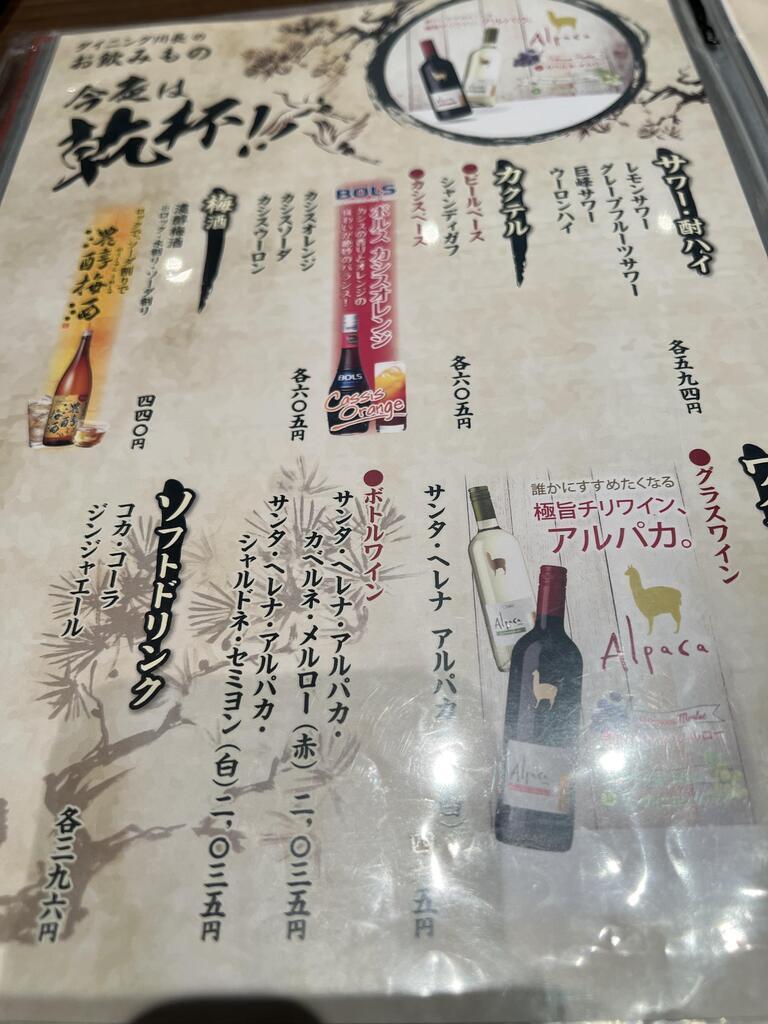 ダイニング川長の
お飲みもの
今夜は
乾杯!!
Alpaca
サワー・酎ハイ
レモンサワー
グレープフルーツサワー
巨峰サワー
ウーロンハイ
各五九四円
カクテル
●ビールベース
シャンディガフ
各六〇五円
●カシスベース
BOLS
ボルス カシスオレンジ
カシスの香りとオレンジの
味わいが絶妙のバランス!
BOLS
Cassis
Orange
カシスオレンジ
カシスソーダ
カシスウーロン
各六〇五円
梅酒
濃醇梅酒
※ロック・水割り・ソーダ割り
四四〇円
ロックで、ソーダ割りで
濃醇梅酒
●グラスワイン
誰かにすすめたくなる
極旨チリワイン、
アルパカ。
Alpaca
Alpaca
Alpaca
サンタ・ヘレナ アルパカ
●ボトルワイン
サンタ・ヘレナ・アルパカ・
カベルネ・メルロー(赤)二,〇三五円
サンタ・ヘレナ・アルパカ・
シャルドネ・セミヨン(白)二,〇三五円
ソフトドリンク
コカ・コーラ
ジンジャエール
各三九六円